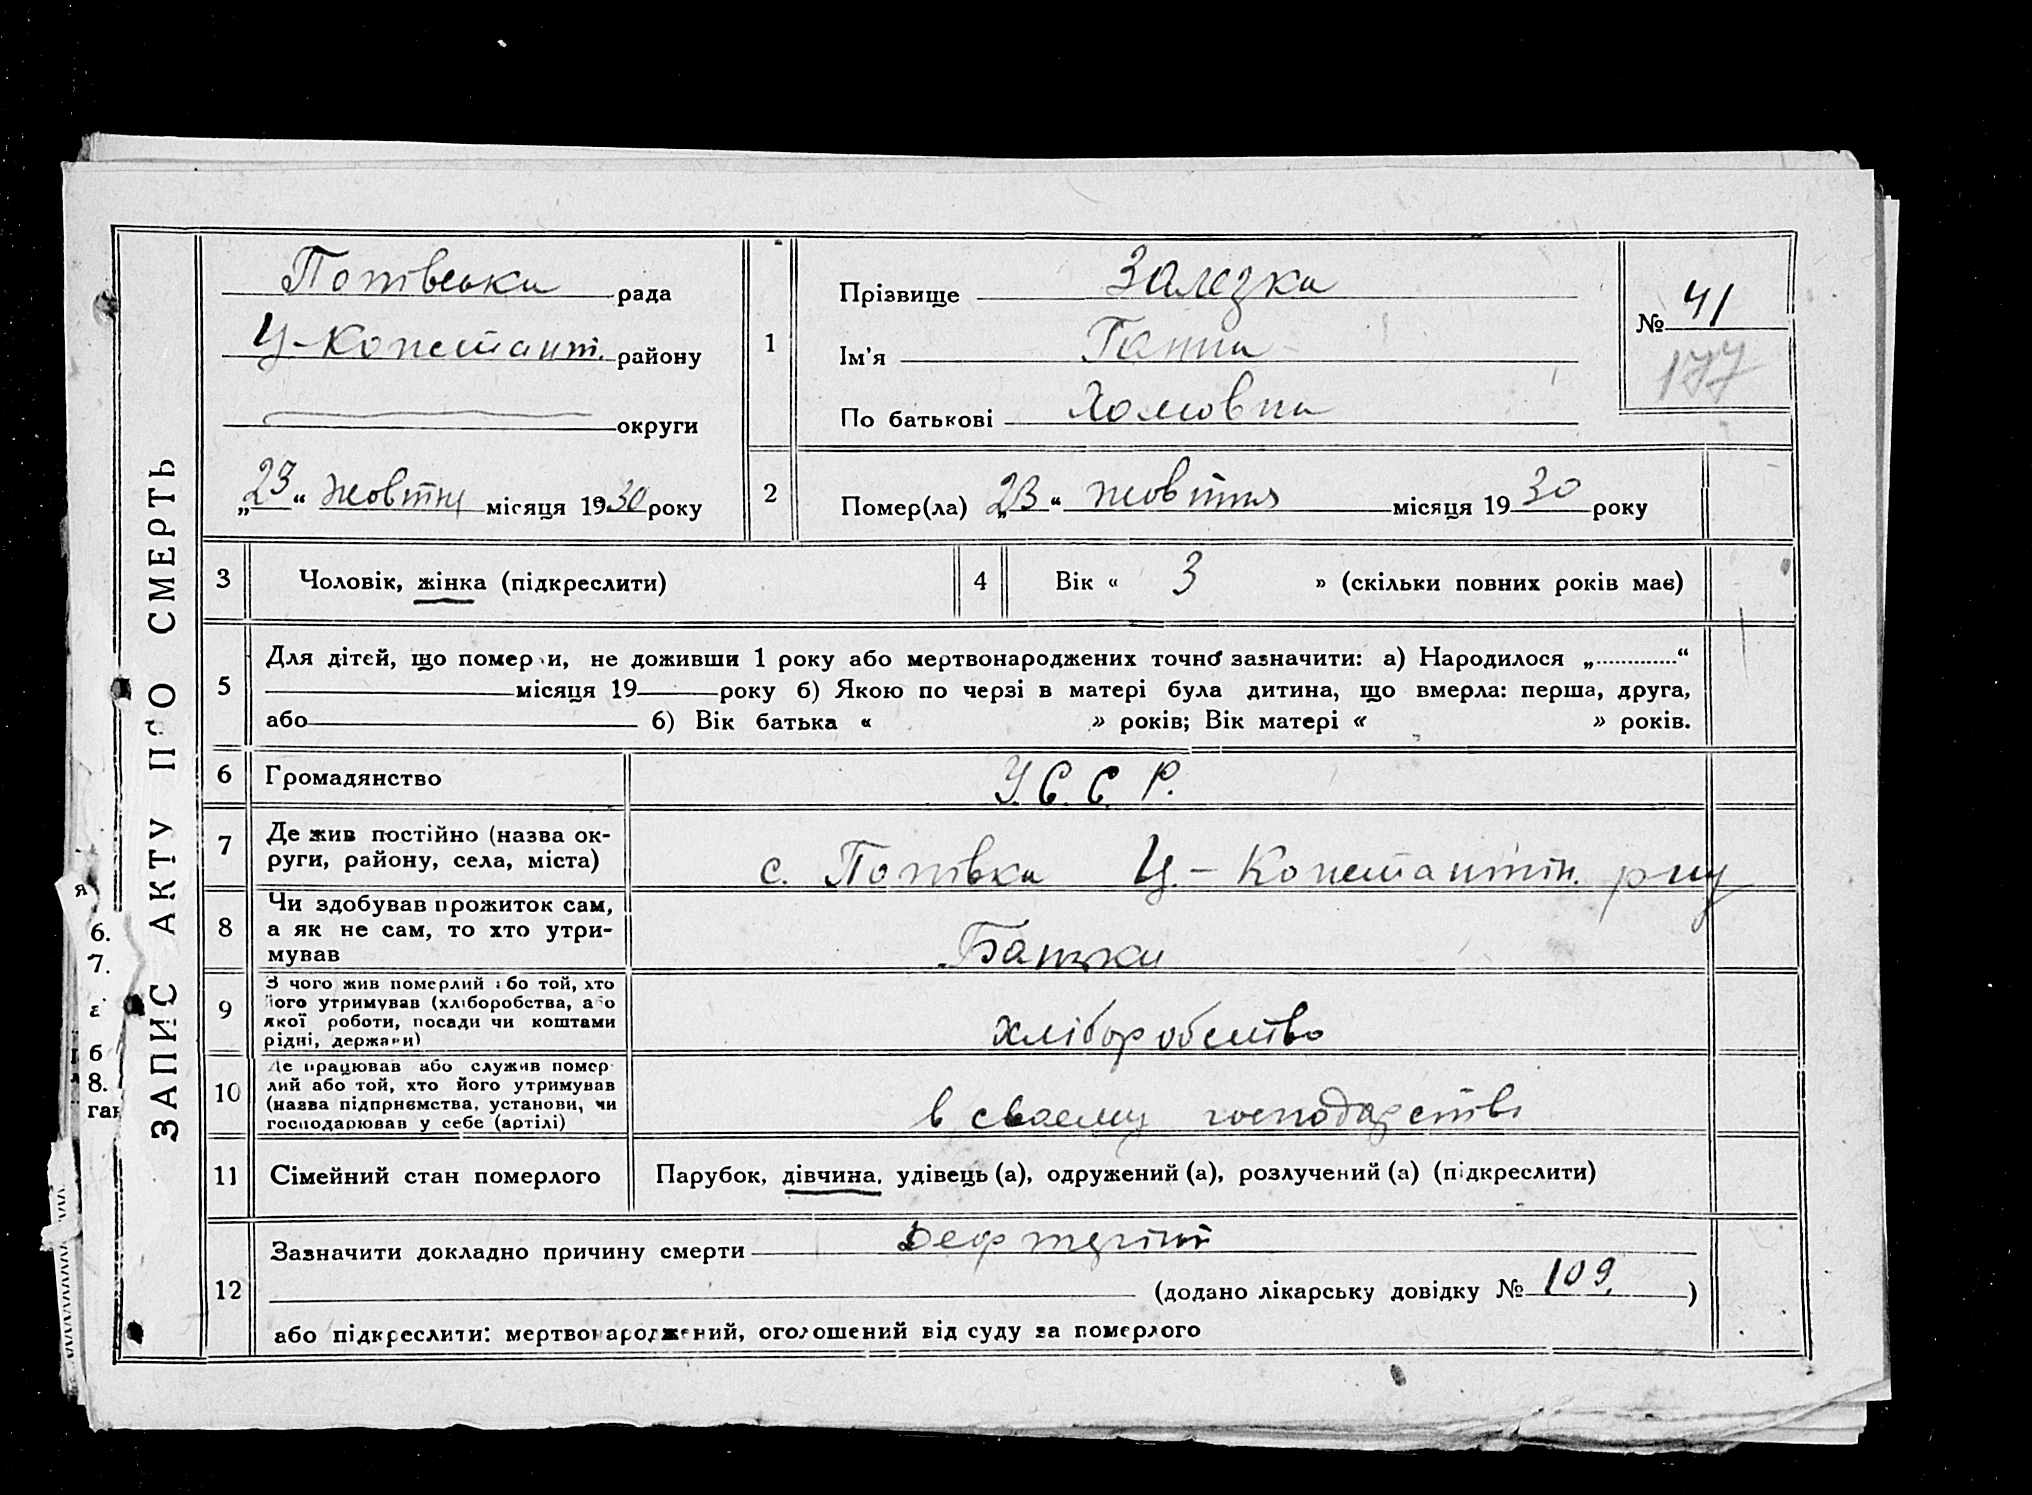 ЗАПИС АКТУ ПРО СМЕРТЬ
Попівська рада
Ц-Констант. району
округи
„23“ жовтня місяця 1930 року
1
Прізвище Залезка
Ім'я Ганна
По батькові Хомовна
№ 41
177
2
Помер(ла) „23“ жовтня місяця 1930 року
3 Чоловік, жінка (підкреслити)
4 Вік « 3 » (скільки повних років має)
5
Для дітей, що померли, не доживши 1 року або мертвонароджених точно зазначити: а) Народилося „............“
місяця 19 року б) Якою по черзі в матері була дитина, що вмерла: перша, друга,
або 6) Вік батька « » років; Вік матері « » років.
6 Громадянство У.С.С.Р.
7 Де жив постійно (назва ок-
руги, району, села, міста)
с. Попівка Ц.-Константін. р-ну
8 Чи здобував прожиток сам,
а як не сам, то хто утри-
мував
Батьки
9 З чого жив померлий або той, хто
його утримував (хліборобства, або
якої роботи, посади чи коштами
рідні, держави)
хліборобство
10 Де працював або служив помер-
лий або той, хто його утримував
(назва підприємства, установи, чи
господарював у себе (артілі)
в своему господарстві
11 Сімейний стан померлого
Парубок, дівчина, удівець (а), одружений (а), розлучений (а) (підкреслити)
12
Зазначити докладно причину смерти
(додано лікарську довідку № 109.)
або підкреслити: мертвонароджений, оголошений від суду за померлого
я
6.
7.
б
8.
ган